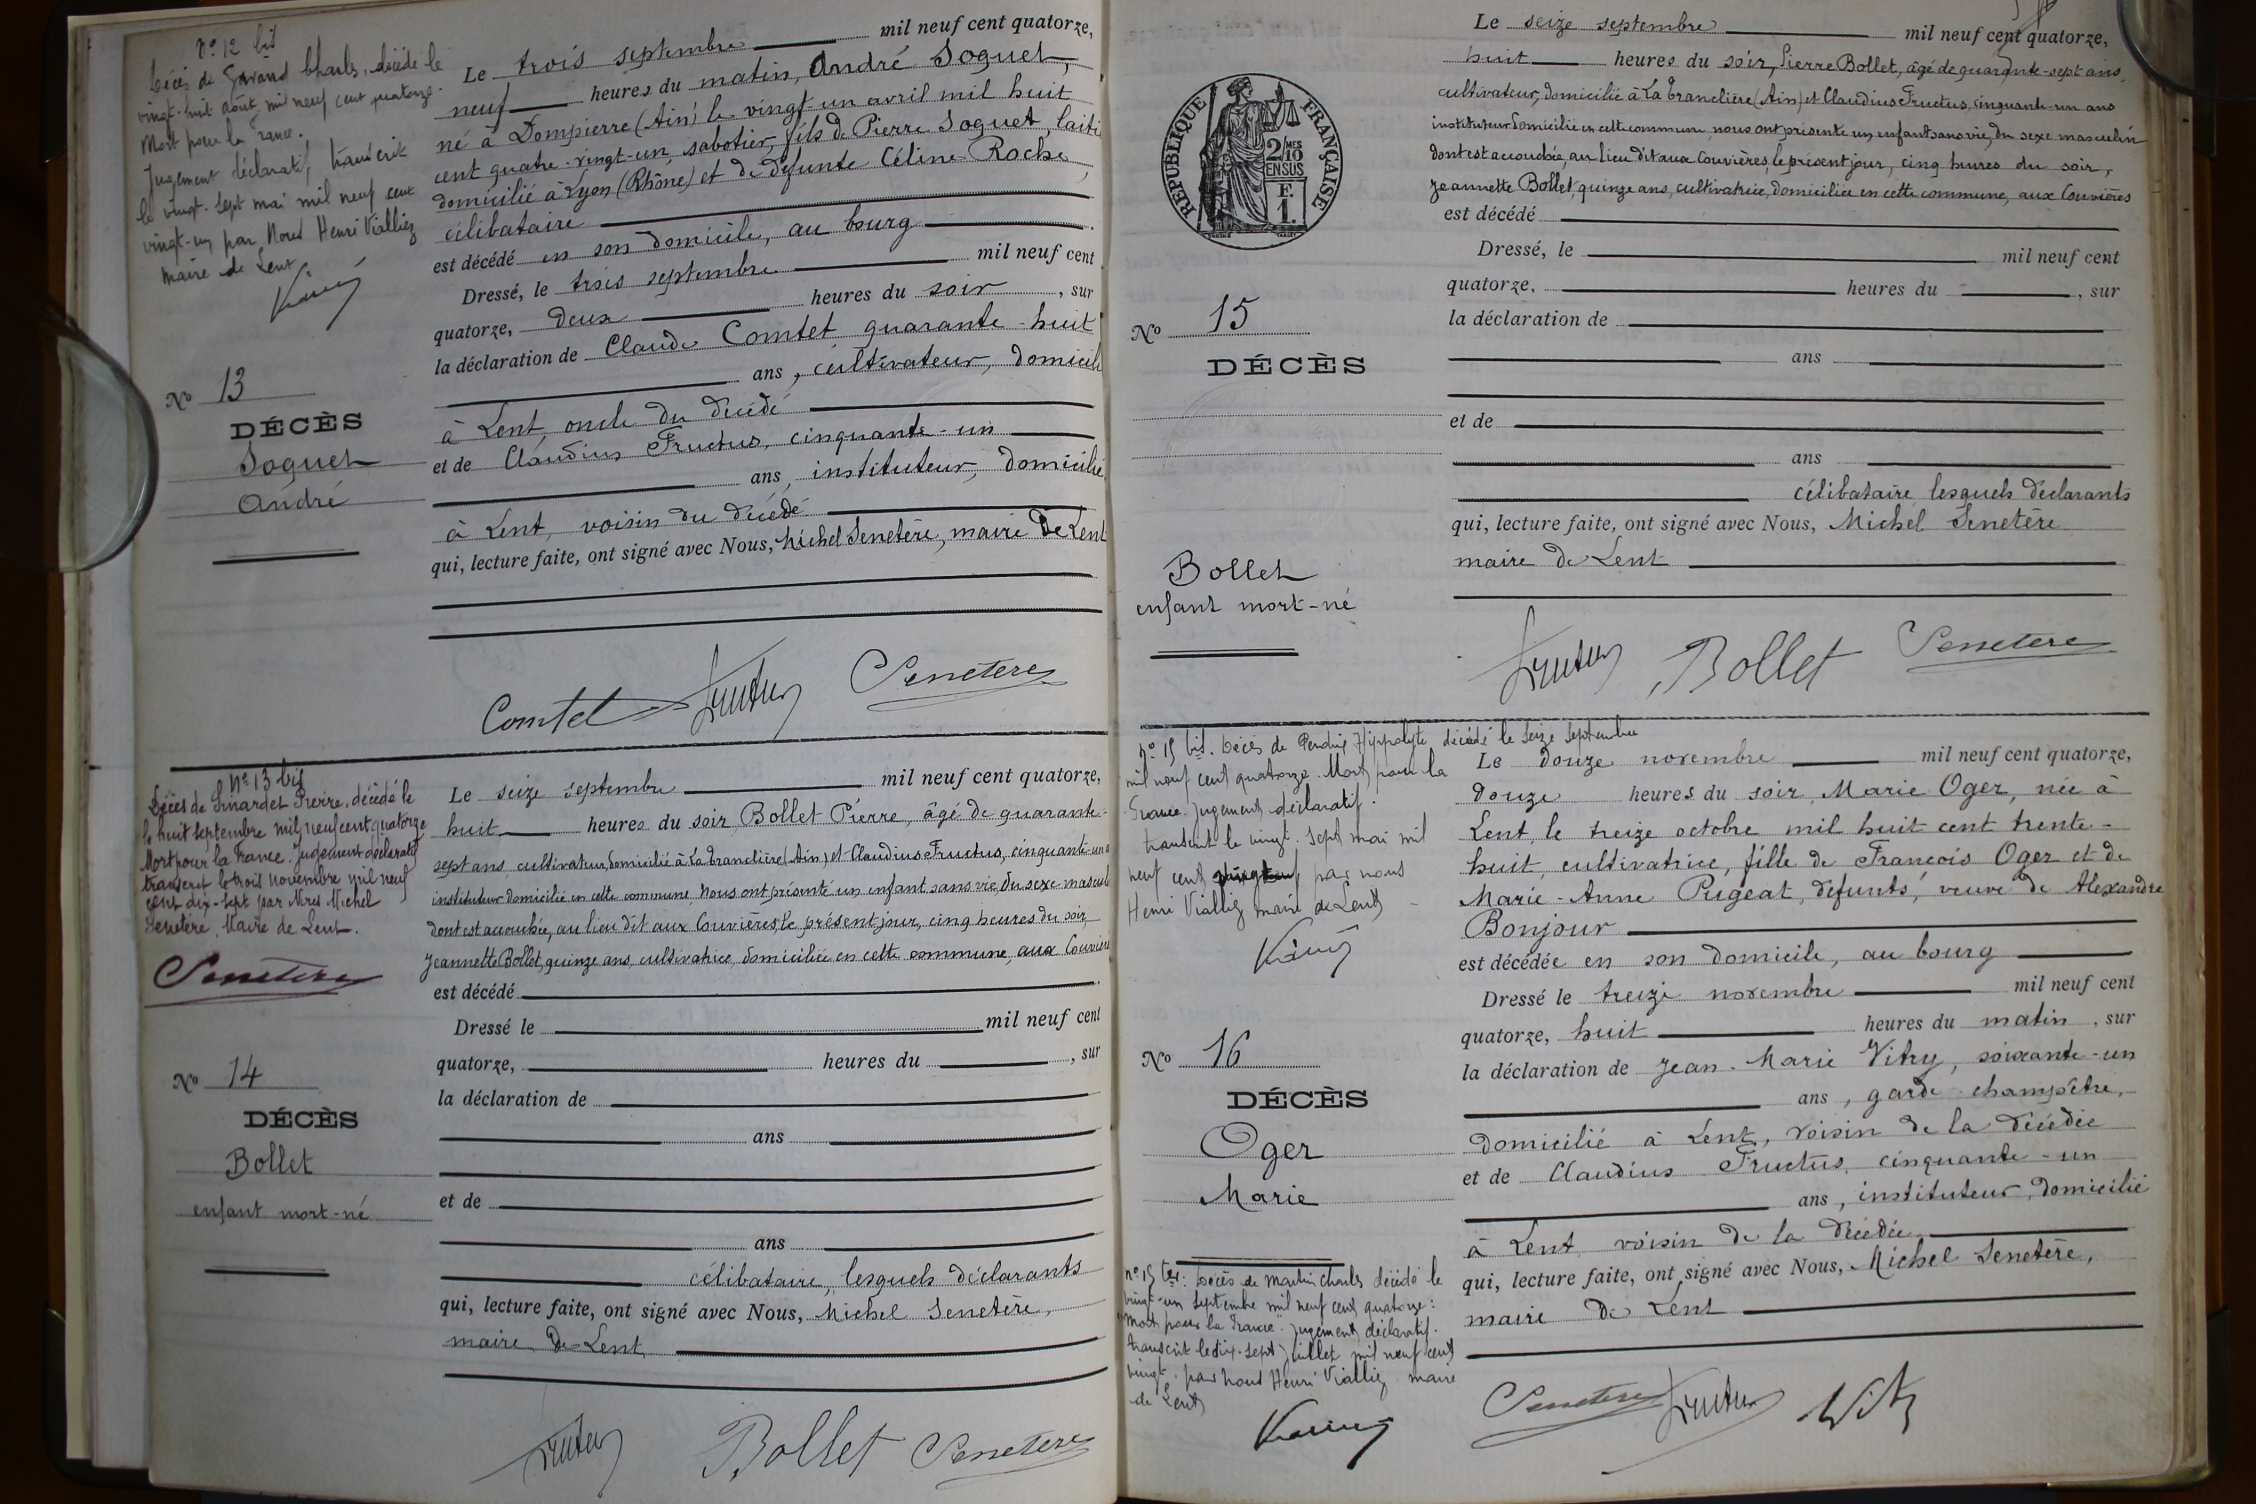 n° 12 bis
Décès de Gérand Charles, décédé le
vingt-huit août mil neuf cent quatorze.
Mort pour la France.
Jugement déclaratif, transcrit
le vingt-sept mai mil neuf cent
vingt-un par Nous Henri Vialliez
maire de Lent.
N° 13
DÉCÈS
Soguet
André
Le trois septembre mil neuf cent quatorze,
neuf heures du matin, André Soguet,
né à Dompierre (Ain) le vingt-un avril mil huit
cent quatre-vingt-un, sabotier, fils de Pierre Soguet, laiti
domicilié à Lyon (Rhône) et de défunte Céline Roche,
célibataire
est décédé en son domicile, au bourg
Dressé, le trois septembre mil neuf cent
quatorze, deux heures du soir, sur
la déclaration de Claude Comtet quarante-huit
ans, cultivateur, domicili
à Lent, oncle du décédé
et de Claudius Fructus, cinquante-un
ans, instituteur, domicilié
à Lent, voisin du décédé
qui, lecture faite, ont signé avec Nous, Michel Senetère, maire de Lent
Comtet Fructus Senetère
n° 13 bis
Décès de Sinardet Pierre, décédé le
le huit septembre mil neuf cent quatorze
Mort pour la France. Jugement déclaratif
transcrit le trois novembre mil neuf
cent dix-sept par Nous Michel
Senetère, Maire de Lent.
Senetère
N° 14
DÉCÈS
Bollet
enfant mort-né
Le seize septembre mil neuf cent quatorze,
huit heures du soir, Bollet Pierre, âgé de quarante-
sept ans, cultivateur, domicilié à La Tranclière (Ain) et Claudius Fructus, cinquante-un a
instituteur domicilié en cette commune nous ont présenté un enfant sans vie, du sexe mascul
dont est accouchée, au lieu dit aux Couvières, le présent jour, cinq heures du soir,
Jeannette Bollet, quinze ans, cultivatrice, domiciliée en cette commune, aux Couvière
est décédé
Dressé le mil neuf cent
quatorze, heures du , sur
la déclaration de
ans
et de
ans
célibataire, lesquels déclarants
qui, lecture faite, ont signé avec Nous, Michel Senetère,
maire de Lent
Fructus Bollet Senetère
RÉPUBLIQUE FRANÇAISE
2/10 MES
EN SUS
F.
1.
N° 15
DÉCÈS
Bollet
enfant mort-né
Le seize septembre mil neuf cent quatorze,
huit heures du soir, Pierre Bollet, âgé de quarante-sept ans,
cultivateur, domicilié à La Tranclière (Ain) et Claudius Fructus, cinquante-un ans
instituteur domicilié en cette commune, nous ont présenté un enfant sans vie, du sexe masculin
dont est accouchée, au lieu dit aux Couvières, le présent jour, cinq heures du soir,
Jeannette Bollet, quinze ans, cultivatrice, domiciliée en cette commune, aux Couvières
est décédé
Dressé, le mil neuf cent
quatorze, heures du , sur
la déclaration de
ans
et de
ans
célibataire lesquels déclarants
qui, lecture faite, ont signé avec Nous, Michel Senetère
maire de Lent
Fructus Bollet Senetère
n° 15 bis. Décès de Hippolyte décédé le seize septembre
mil neuf cent quatorze. Mort pour la
France. Jugement déclaratif.
transcrit le vingt-sept mai mil
neuf cent par nous
Henri Vialliez maire de Lent
N° 16
DÉCÈS
Oger
Marie
Le douze novembre mil neuf cent quatorze,
douze heures du soir, Marie Oger, née à
Lent, le treize octobre mil huit cent trente-
huit, cultivatrice, fille de François Oger et de
Marie-Anne Pugeat, défunts, veuve de Alexandre
Bonjour
est décédée en son domicile, au bourg
Dressé le treize novembre mil neuf cent
quatorze, huit heures du matin, sur
la déclaration de Jean-Marie Vitry, soixante-un
ans, garde-champêtre,
domicilié à Lent, voisin de la décédée
et de Claudius Fructus, cinquante-un
ans, instituteur, domicilié
à Lent voisin de la décédée
qui, lecture faite, ont signé avec Nous, Michel Senetère,
maire de Lent
n° 15 ter: Décès de Martin Charles décédé le
vingt-un septembre mil neuf cent quatorze:
"Mort pour la France". Jugement déclaratif.
transcrit le dix-sept juillet mil neuf cent
vingt par nous Henri Vialliez maire
de Lent
Senetère Fructus Vitry